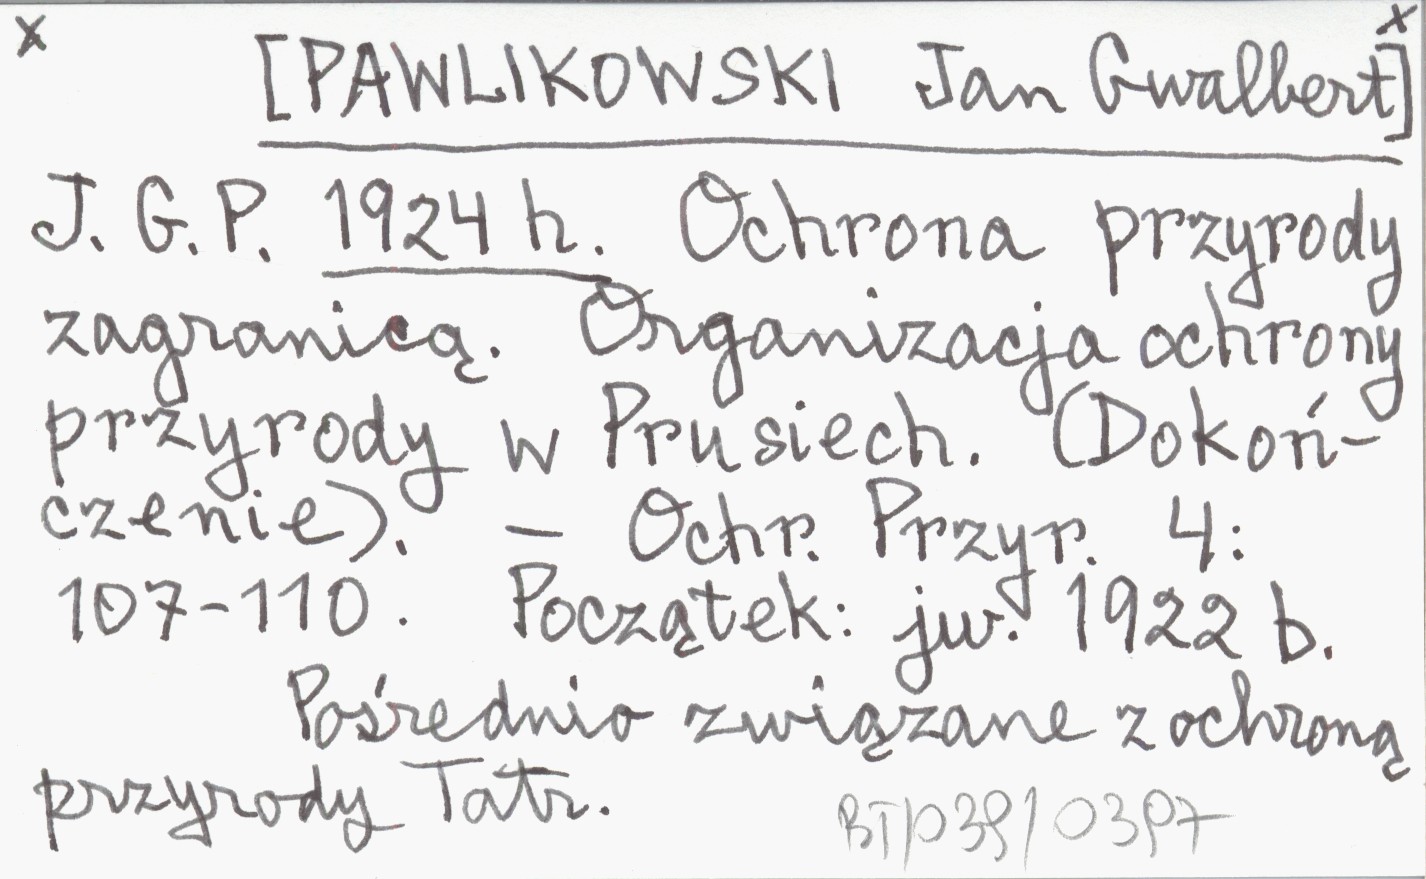 x x
[PAWLIKOWSKI Jan Gwalbert]
J. G. P. 1924 h. Ochrona przyrody
zagranicą. Organizacja ochrony
przyrody w Prusiech. (Dokoń-
czenie). – Ochr. Przyr. 4:
107-110. Początek: jw. 1922 b.
Pośrednio związane z ochroną
przyrody Tatr.
BT/039/0397